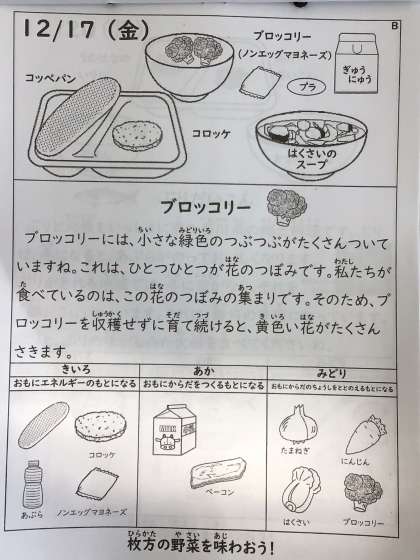 12/17（金）
B
ブロッコリー
(ノンエッグマヨネーズ)
コッペパン
プラ
ぎゅう
にゅう
コロッケ
はくさいの
スープ
ブロッコリー
ブロッコリーには、小さな緑色のつぶつぶがたくさんついて
いますね。これは、ひとつひとつが花のつぼみです。私たちが
食べているのは、この花のつぼみの集まりです。そのため、ブ
ロッコリーを収穫せずに育て続けると、黄色い花がたくさん
さきます。
きいろ
おもにエネルギーのもとになる
あか
おもにからだをつくるもとになる
みどり
おもにからだのちょうしをととのえるもとになる
コロッケ
あぶら
ノンエッグマヨネーズ
ベーコン
たまねぎ
にんじん
はくさい
ブロッコリー
枚方の野菜を味わおう！